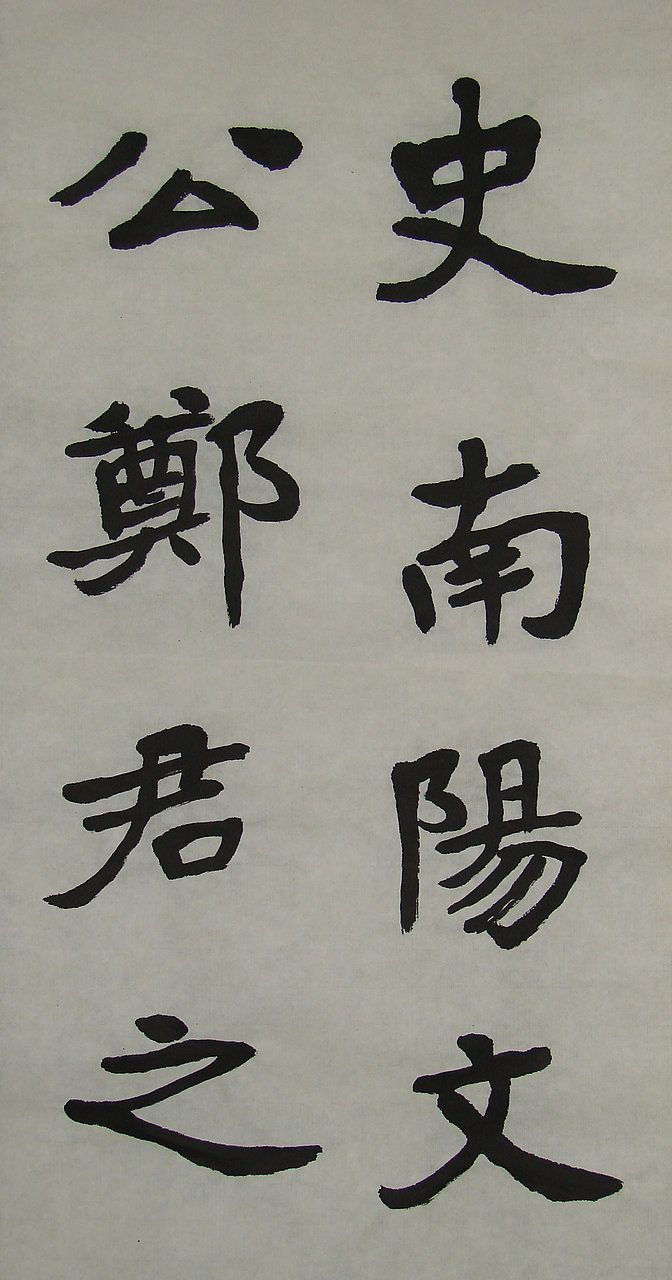 史南陽文
公鄭君之